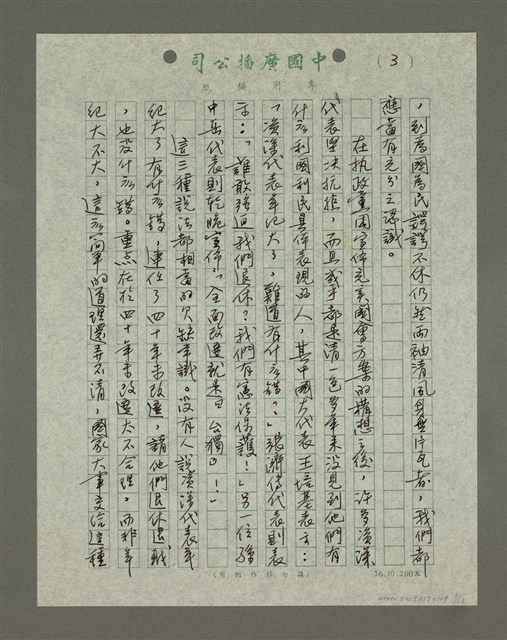 (3)
中國廣播公司
專用稿紙
，到為國為民諤諤不休仍然兩袖清風身無片瓦者，我們都
應當有充分之認識。
在執政黨團宣佈充實國會方案的構想之後，許多資深
代表堅決抗拒，而且幾乎都是清一色多年來沒見到他們有
什麼利國利民具體表現的人，其中國大代表王培基表示：
「資深代表年紀大了，難道有什麼錯？」張濟傳代表則表
示：「誰敢強迫我們退休？我們有憲法保護！」另一位孫
中岳代表則乾脆宣佈：「全面改選就是『台獨』！」
這三種說法都相當的欠缺常識。沒有人說資深代表年
紀大了有什麼錯，連任了四十年未改選，請他們退休退職
，也沒什麼錯。重點在於四十年未改選太不合理。而非年
紀大不大，這麼簡單的道理還弄不清，國家大事交給這種
76.10.200本